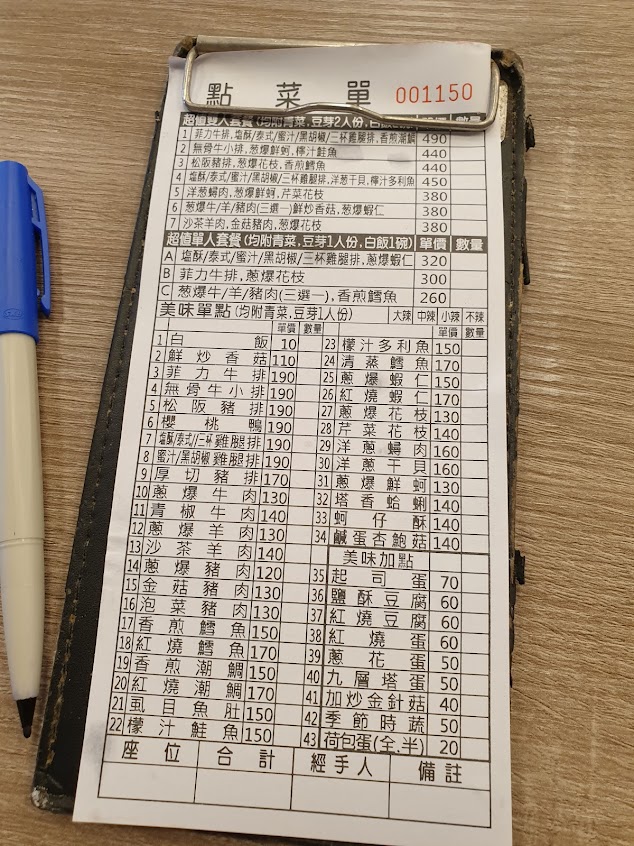 點菜單 001150
超值雙人套餐(均附青菜,豆芽2人份,白飯 數量
1 菲力牛排,塩酥/泰式/蜜汁/黑胡椒/三杯雞腿排,香煎潮鯛 490
2 無骨牛小排,蔥爆鮮蚵,檸汁鮭魚 440
3 松阪豬排,蔥爆花枝,香煎鱈魚 440
4 塩酥/泰式/蜜汁/黑胡椒/三杯雞腿排,洋蔥干貝,檸汁多利魚 450
5 洋蔥蟳肉,蔥爆鮮蚵,芹菜花枝 380
6 蔥爆牛/羊/豬肉(三選一)鮮炒香菇,蔥爆蝦仁 380
7 沙茶羊肉,金菇豬肉,蔥爆花枝 380
超值單人套餐(均附青菜,豆芽1人份,白飯1碗) 單價 數量
A 塩酥/泰式/蜜汁/黑胡椒/三杯雞腿排,蔥爆蝦仁 320
B 菲力牛排,蔥爆花枝 300
C 蔥爆牛/羊/豬肉(三選一),香煎鱈魚 260
美味單點(均附青菜,豆芽1人份) 大辣 中辣 小辣 不辣
單價 數量
1 白飯 10
2 鮮炒香菇 110
3 菲力牛排 190
4 無骨牛小排 190
5 松阪豬排 190
6 櫻桃鴨 190
7 塩酥/泰式/三杯雞腿排 190
8 蜜汁/黑胡椒雞腿排 190
9 厚切豬排 170
10 蔥爆牛肉 130
11 青椒牛肉 140
12 蔥爆羊肉 130
13 沙茶羊肉 140
14 蔥爆豬肉 120
15 金菇豬肉 130
16 泡菜豬肉 130
17 香煎鱈魚 150
18 紅燒鱈魚 170
19 香煎潮鯛 150
20 紅燒潮鯛 170
21 虱目魚肚 150
22 檬汁鮭魚 150
單價 數量
23 檬汁多利魚 150
24 清蒸鱈魚 170
25 蔥爆蝦仁 150
26 紅燒蝦仁 170
27 蔥爆花枝 130
28 芹菜花枝 140
29 洋蔥蟳肉 160
30 洋蔥干貝 160
31 蔥爆鮮蚵 130
32 塔香蛤蜊 140
33 蚵仔酥 140
34 鹹蛋杏鮑菇 140
美味加點
35 起司蛋 70
36 鹽酥豆腐 60
37 紅燒豆腐 60
38 紅燒蛋 60
39 蔥花蛋 50
40 九層塔蛋 50
41 加炒金針菇 40
42 季節時蔬 50
43 荷包蛋(全.半) 20
座位 合計 經手人 備註